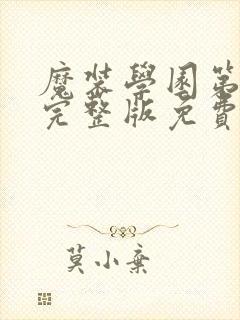 魔裝學園第
完整版免費
莫小棄